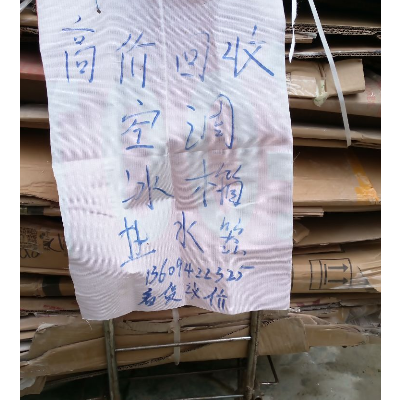 高价回收
空调
冰箱
热水器
13609422325
看货议价